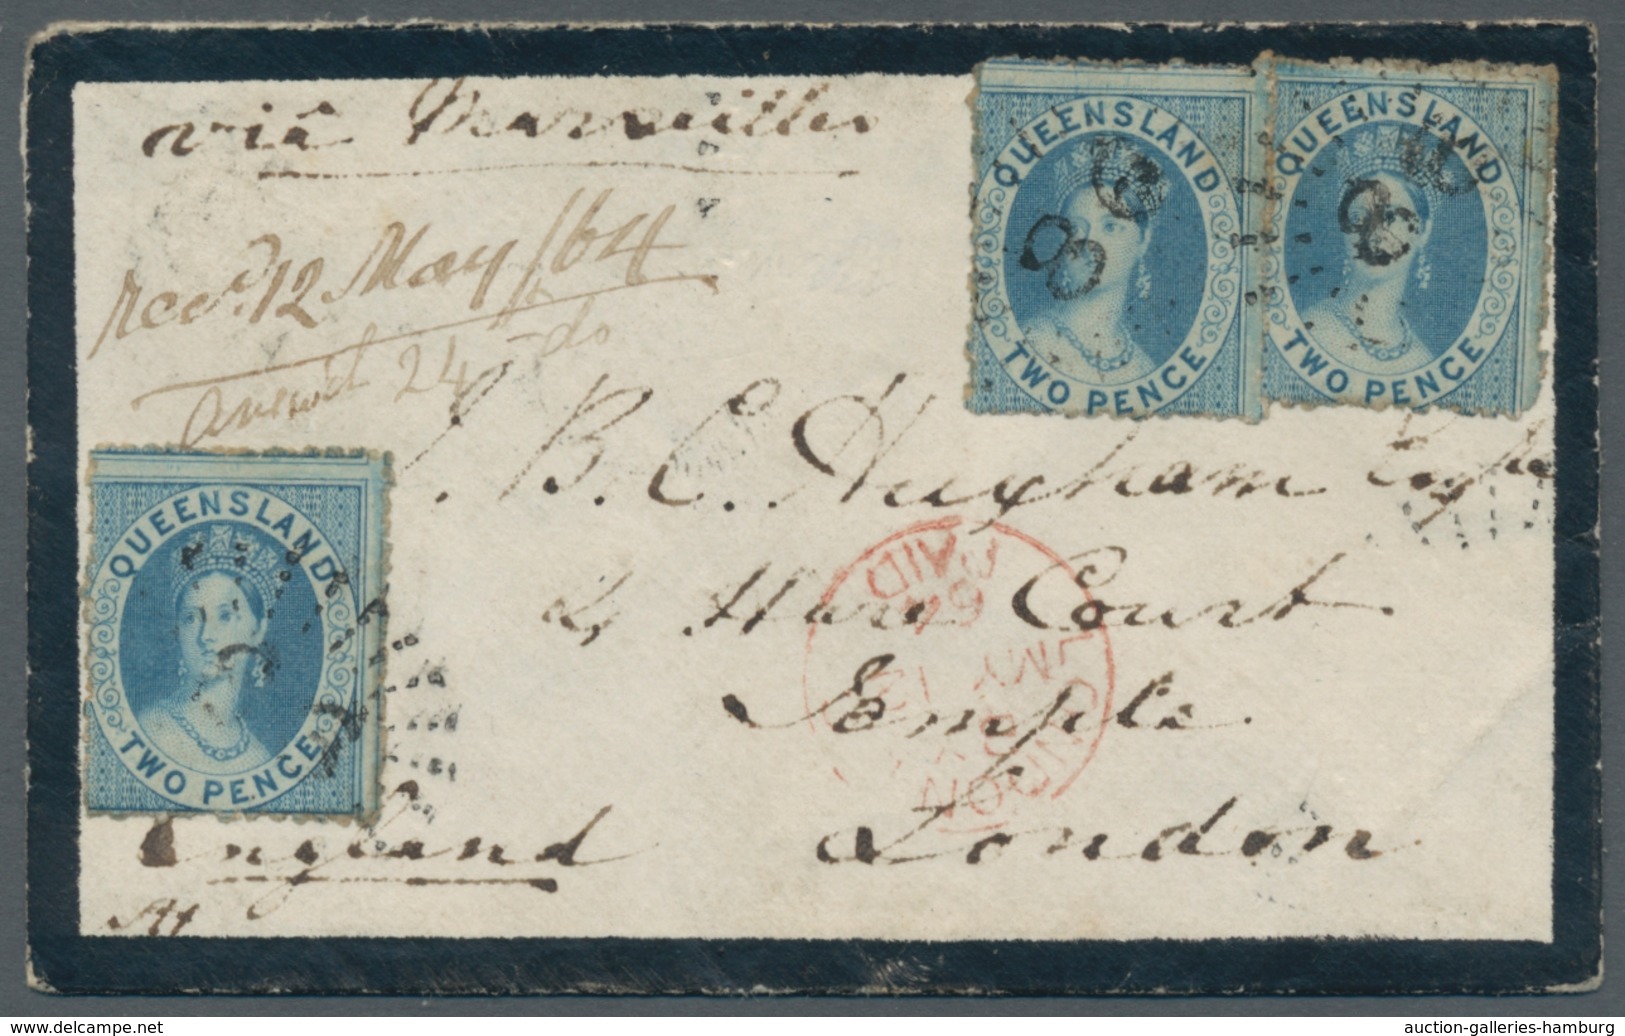 viâ Marseilles
QUEENSLAND
TWO PENCE
QUEENSLAND
TWO PENCE
Recd. 12 May/64
Answd 24 do
QUEENSLAND
TWO PENCE
J. B. C. Huxham Esqre
2, Hare Court
Temple
London
England
LONDON
MY 12
64
PAID
www.delcampe.net
auction-galleries-hamburg